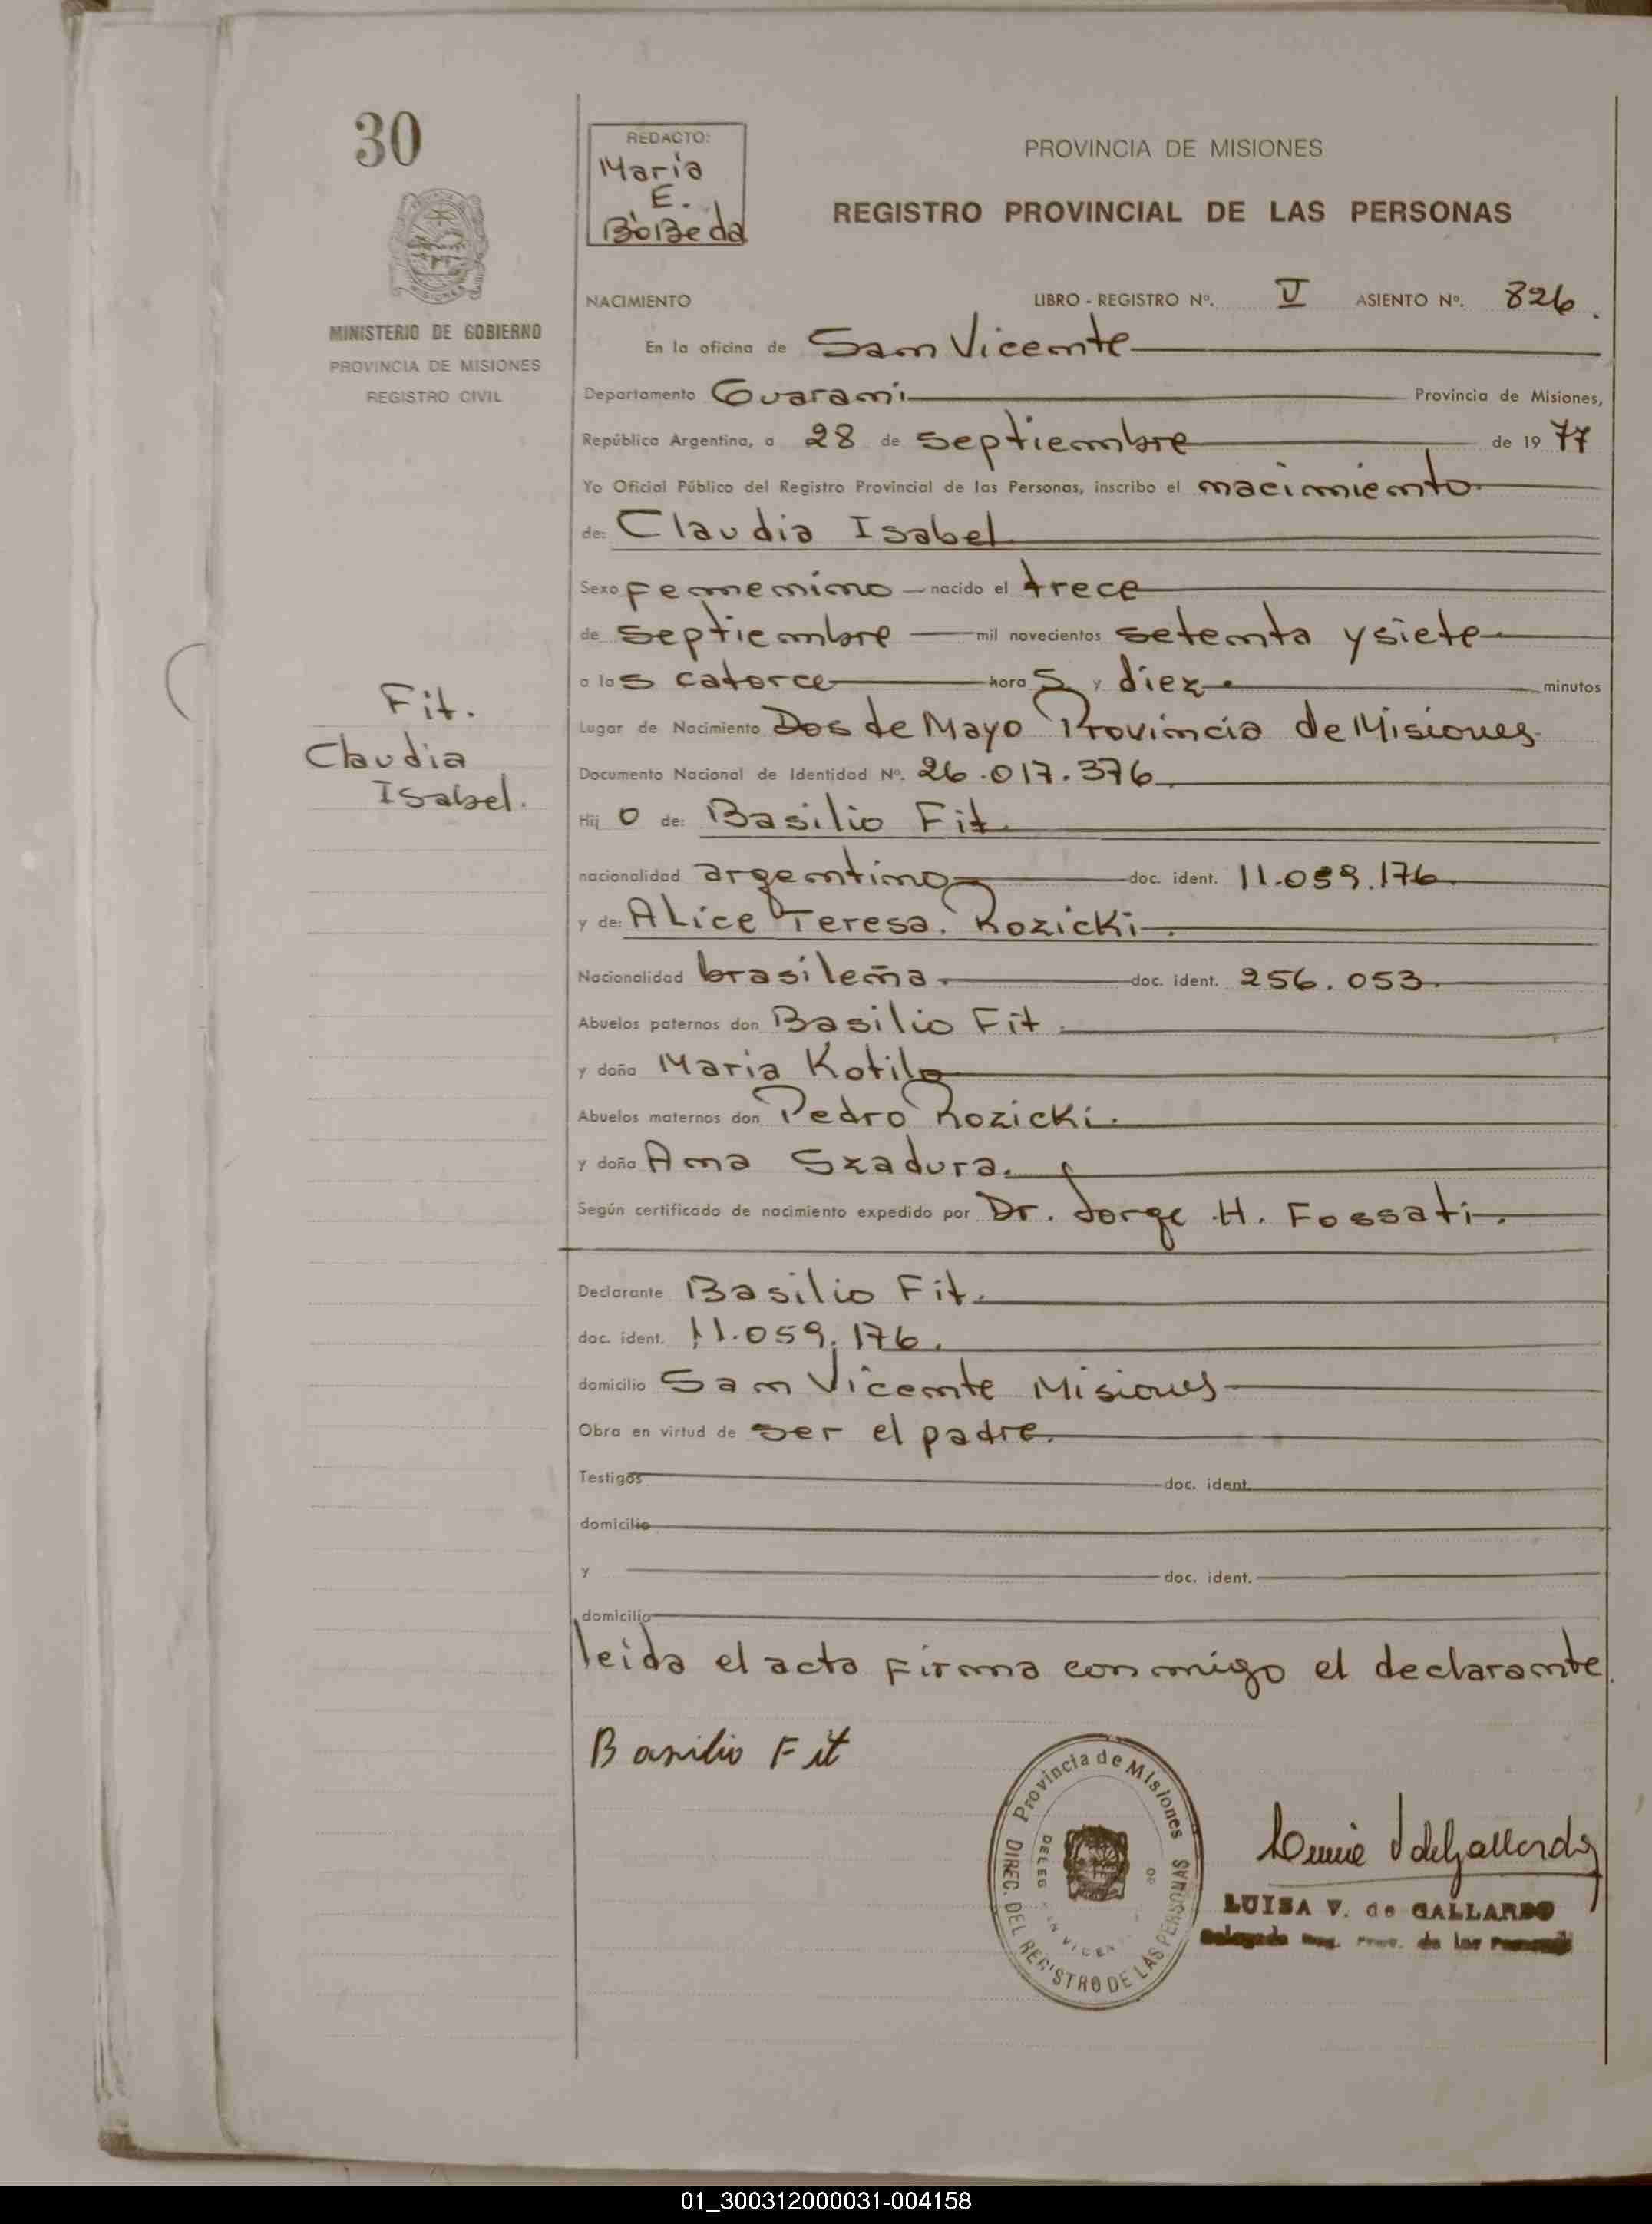 30
MINISTERIO DE GOBIERNO
PROVINCIA DE MISIONES
REGISTRO CIVIL
Fit.
Claudia
Isabel.
REDACTO:
Maria
E.
PROVINCIA DE MISIONES
REGISTRO PROVINCIAL DE LAS PERSONAS
NACIMIENTO LIBRO - REGISTRO Nº. V ASIENTO Nº. 826.
En la oficina de San Vicente
Departamento Guarani Provincia de Misiones,
República Argentina, a 28 de septiembre de 19 77
Yo Oficial Público del Registro Provincial de las Personas, inscribo el nacimiento
de: Claudia Isabel
Sexo femenino nacido el trece
de septiembre mil novecientos setenta y siete
a las catorce horas y diez minutos
Lugar de Nacimiento Dos de Mayo Provincia de Misiones.
Documento Nacional de Identidad Nº. 26.017.376
Hij o de: Basilio Fit.
nacionalidad argentino doc. ident. 11.059.176
y de: Alice Teresa. Rozicki.
Nacionalidad brasileña. doc. ident. 256.053.
Abuelos paternos don Basilio Fit.
y doña Maria Kotilo
Abuelos maternos don Pedro Rozicki.
y doña Ana Szadura.
Según certificado de nacimiento expedido por Dr. Jorge H. Fossati.
Declarante Basilio Fit.
doc. ident. 11.059.176.
domicilio San Vicente Misiones
Obra en virtud de ser el padre.
Testigos doc. ident.
domicilio
y doc. ident.
domicilio
leida el acta firma conmigo el declarante.
Basilio Fit
Provincia de Misiones
DIREC. DEL REGISTRO DE LAS PERSONAS
LUISA V. de GALLARDO
01_300312000031-004158